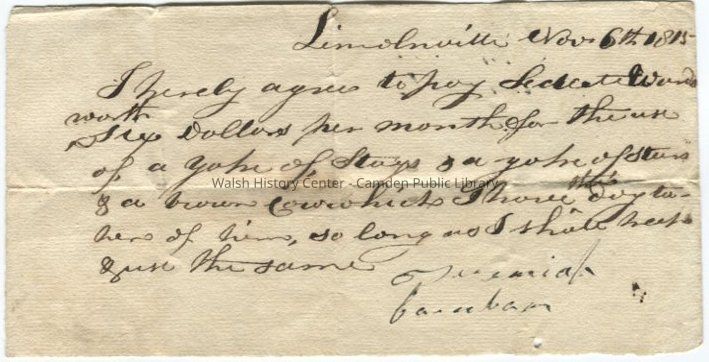 Lincolnville Nov. 6th 1815
I herely agree to pay Wards
worth
Six Dollars per month for the use
of a yoke of Stags & a yoke of Steers
Walsh History Center - Camden Public Library
& a brown Cow which I have this day ta-
ken of him, so long as I shall keep
& use the same
Jeremiah
Farnham